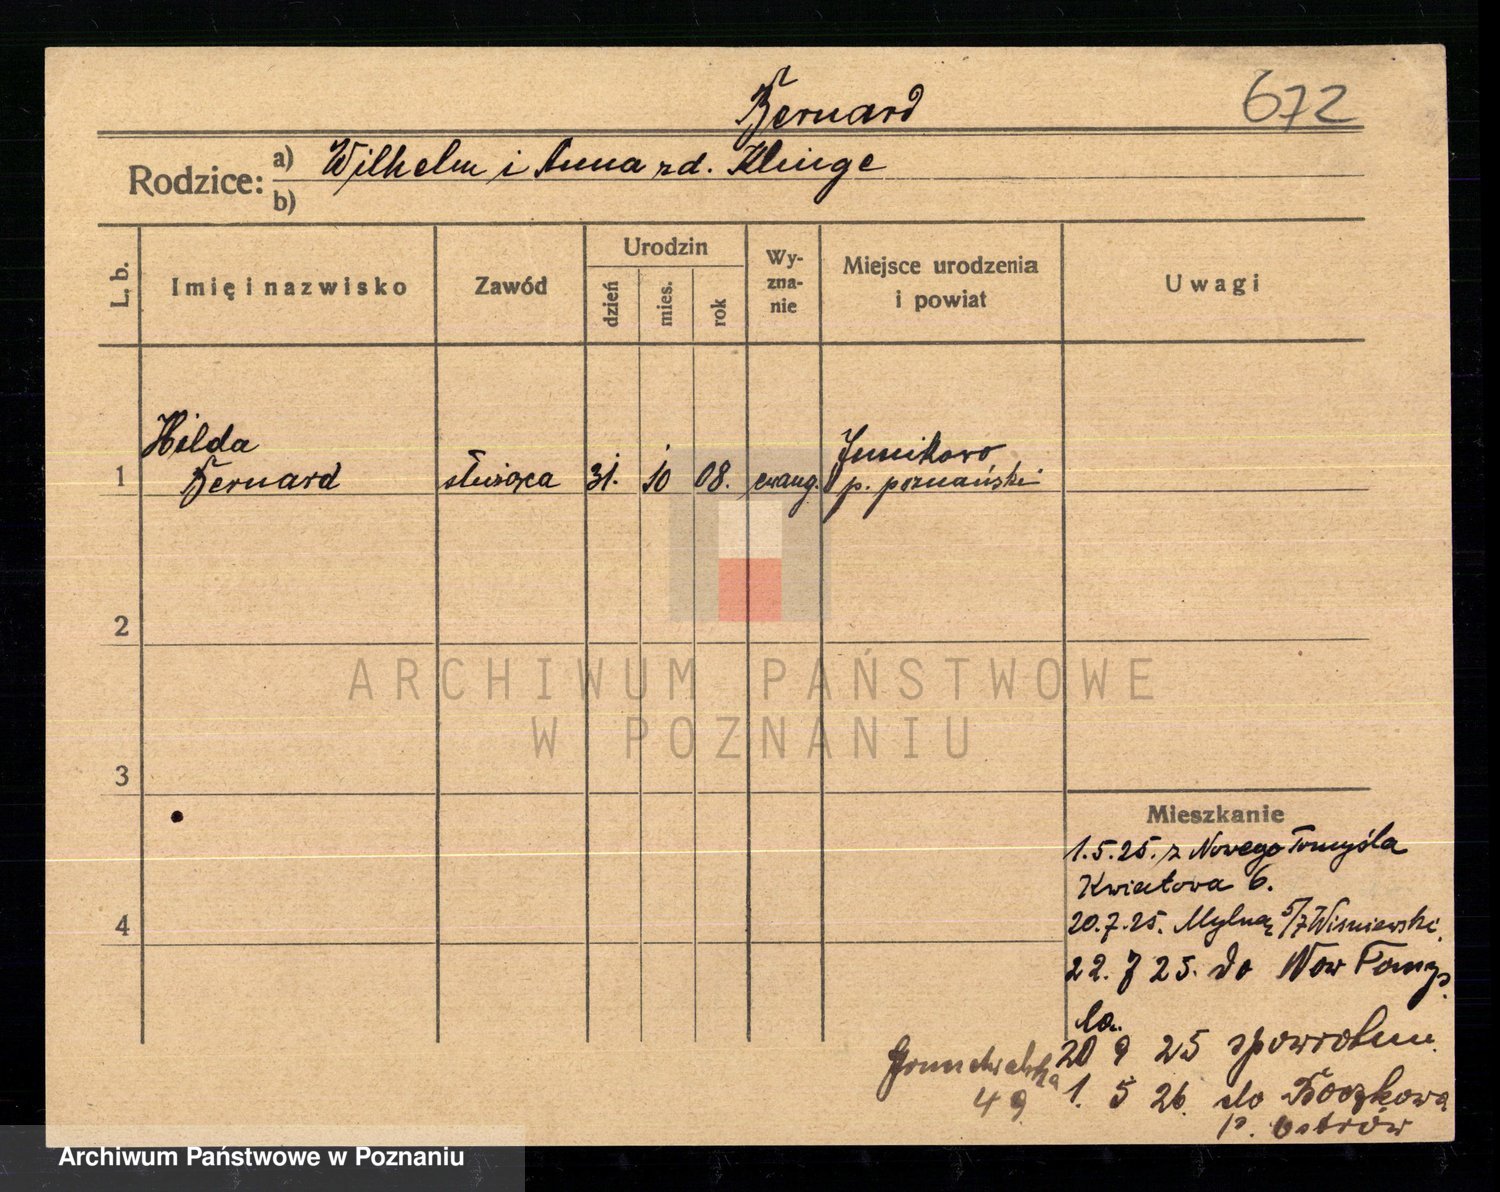 Bernard
672
Rodzice:
a) Wilhelm i Anna zd. Klinge
b)
L. b.
Imię i nazwisko
Zawód
Urodzin
dzień
mies.
rok
Wy-
zna-
nie
Miejsce urodzenia
i powiat
Uwagi
1
Hilda
Bernard
służąca
31.
10
08.
ewang.
Junikowo
p. poznański
2
3
4
Mieszkanie
1.5.25. z Nowego Tomyśla
Kwiatowa 6.
20.7.25. Mylna 5/7 Wiśniewski.
22. 7 25. do Now Tomyś
la.
20 9 25 spowrotem.
Grunwaldzka
49
1. 5 26. do Boczkowa
p. Ostrów
ARCHIWUM PAŃSTWOWE
W POZNANIU
Archiwum Państwowe w Poznaniu